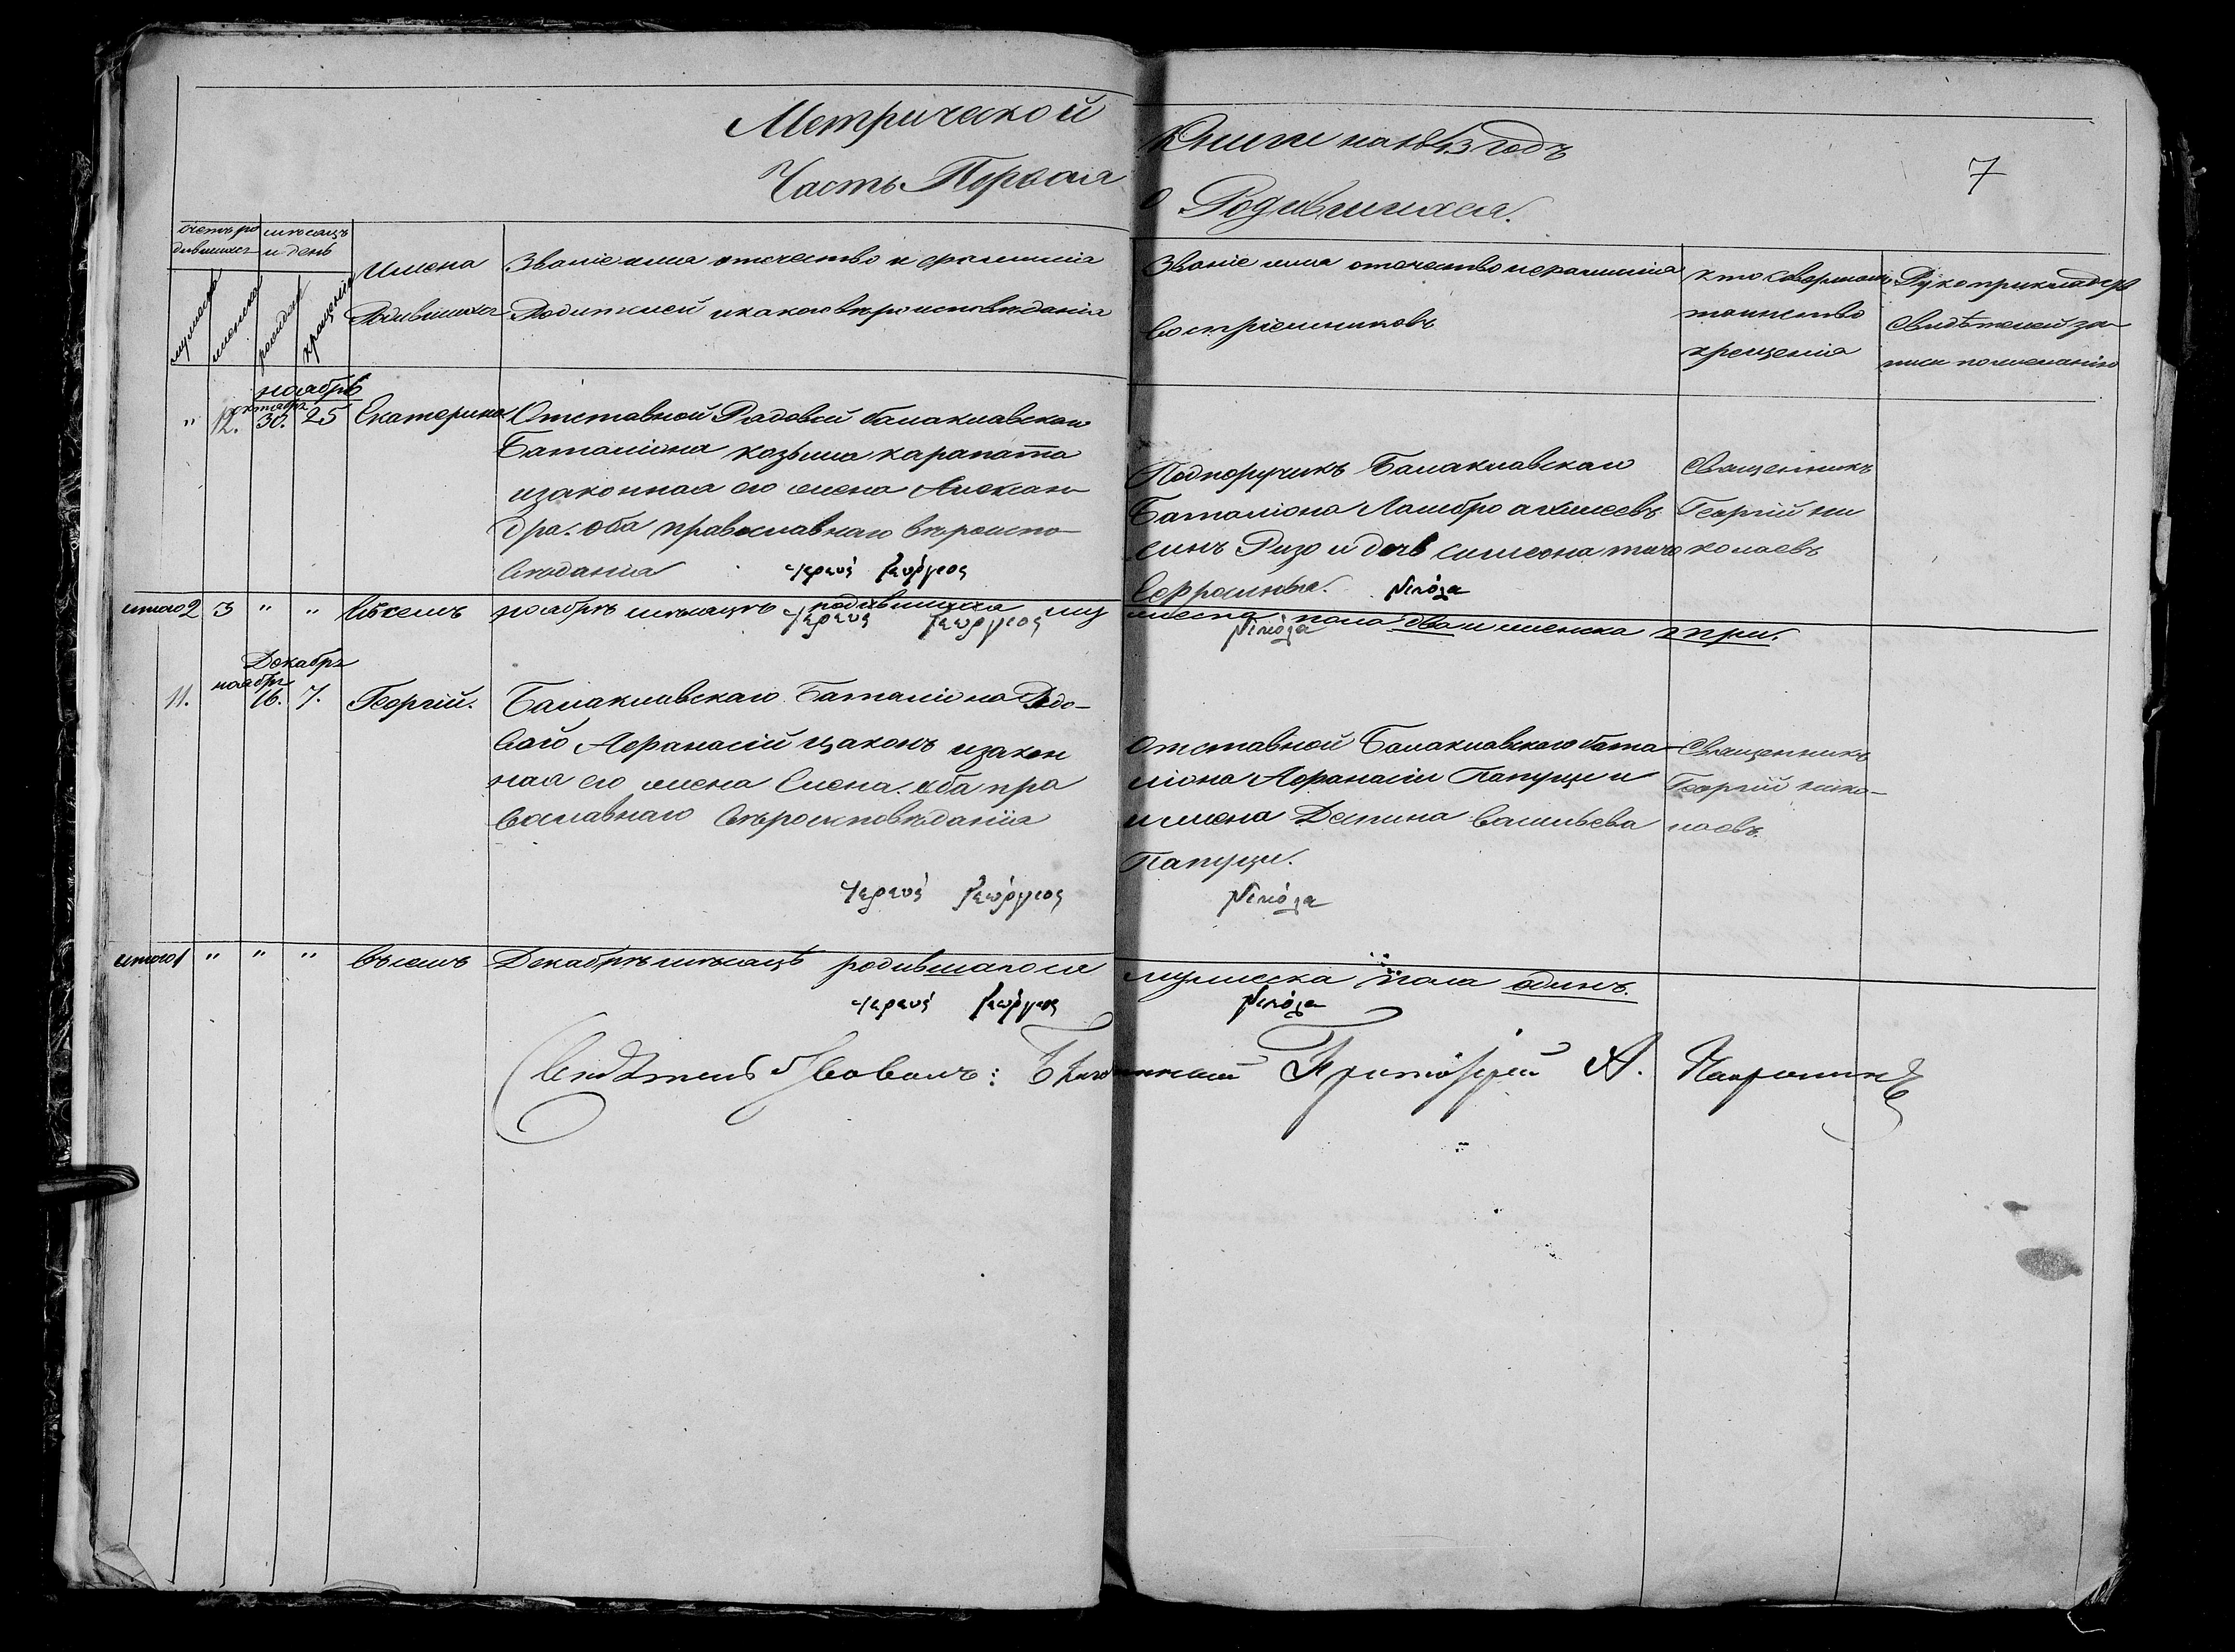 Метрической Книги на 1843 годъ
7
Часть Первая о Родившихся.
Счетъ родившихся
мѣсяцъ и день
Имена Родившихся
Званіе имя отечество и фамилія
Родителей и какого вѣроисповѣданія
Званіе имя отечество и фамилія
Воспріемниковъ
кто совершалъ
таинство
крещенія
Рукоприкладств
свидѣтелей за-
писи по желанію
мужеска
женска
рожденія
крещенія
ноабрь
октабрь
" 12. 30. 25 Екатерина
Отставной Радовой балаклавскаго
Баталіона козьма карапатта
изаконная его жена Алексан-
дра. оба православнаго вѣроиспо-
ведания
Ἱερεύς Γεώργιος
Подпоручикъ Балаклавскаго
Баталіона Ламбро алексеевъ
синъ Ризо и дочь симеона
Сефралины.
Νικόλα
Священникъ
Георгій ни
колаевъ
итого 2 3 " " Въ семъ ноабрѣ мѣсяцѣ родившихса мужеска пола два и женска три.
Ἱερεύς Γεώργιος Νικόλα
Декабрь
ноабрь
11. 16. 7. Георгій.
Балаклавскаго Баталіона Радо-
вой Афанасій изакон
ная его жена Елена. оба пра
вославнаго Вѣроисповѣданіиа
Ἱερεύς Γεώργιος
Отставной Балаклавского бата-
ліона Афанасіи Папуци и
и жена Деспина Васильева
Папуци.
Νικόλα
Священникъ
Георгій нико-
лаевъ.
итого 1 " " " Въ семъ Декабрѣ мѣсяцѣ родившагося мужеска пола одинъ.
Ἱερεύς Γεώργιος Νικόλα
Свидѣтельствовалъ: Благочинный Протоіерей А.